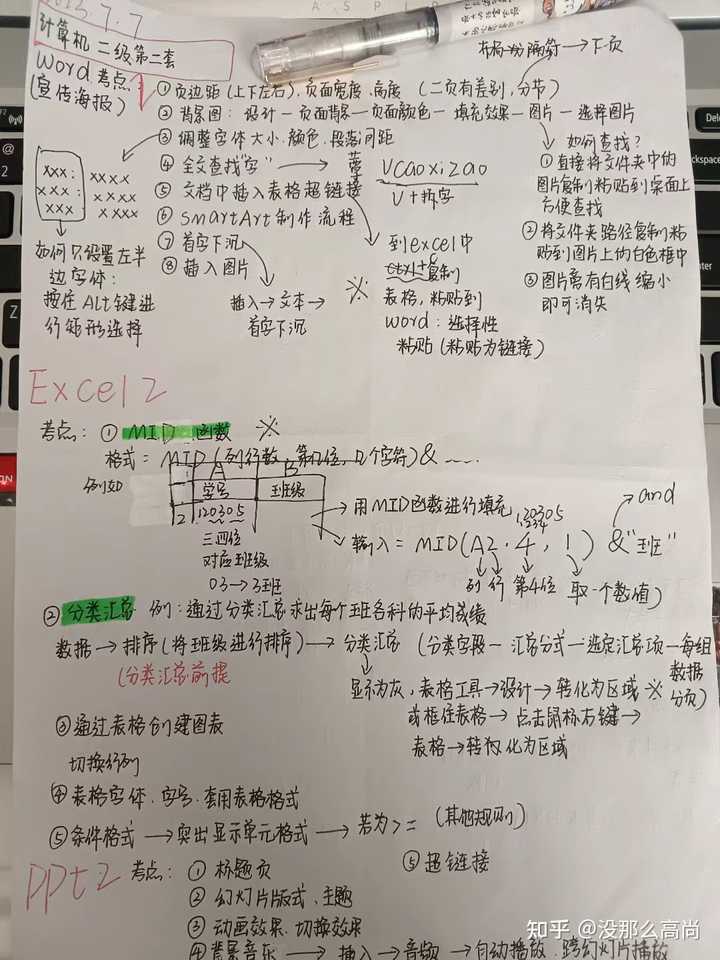 7.7
计算机二级第二套
Word考点
(宣传海报)
布局→分隔符→下页
①页边距(上下左右),页面宽度,高度 (二页有差别,分节)
②背景图:设计—页面背景—页面颜色—填充效果—图片—选择图片
③调整字体大小、颜色、段落间距
④全文查找"字"
Vcaoxizao
V+拆字
⑤文档中插入表格超链接
⑥smartArt制作流程
⑦首字下沉
⑧插入图片
插入→文本→
首字下沉
※
到excel中
ctrl+复制
表格,粘贴到
word:选择性
粘贴(粘贴为链接)
如何查找?
①直接将文件夹中的
图片复制粘贴到桌面上
方便查找
②将文件夹路径复制粘
贴到图片上的白色框中
③图片旁有白线缩小
即可消失
xxx: xxxx
xxx: xxxx
xxx xxxx
如何只设置左半
边字体:
按住Alt键进
行矩形选择
Excel2
考点:①MID函数 ※
格式=MID(列行数,第几位,几个字符)&……
例如
A B
1 学号 班级
2 120305
三四位
对应班级
03→3班
→用MID函数进行填充
120305
1234
and
→输入=MID(A2,4,1)&"班"
列 行 第4位 取一个数值)
②分类汇总 例:通过分类汇总求出每个班各科的平均成绩
数据→排序(将班级进行排序)→分类汇总 (分类字段—汇总分式—选定汇总项—每组
数据
分页)
(分类汇总前提
显示为灰,表格工具→设计→转化为区域 ※
或框住表格→点击鼠标右键→
表格→转化为区域
③通过表格创建图表
切换行列
④表格字体、字号、套用表格格式
⑤条件格式→突出显示单元格式→若为>= (其他规则)
PPT2
考点:①标题页
⑤超链接
②幻灯片版式、主题
③动画效果、切换效果
④背景音乐→插入→音频→自动播放、跨幻灯片播放
知乎 @没那么高尚